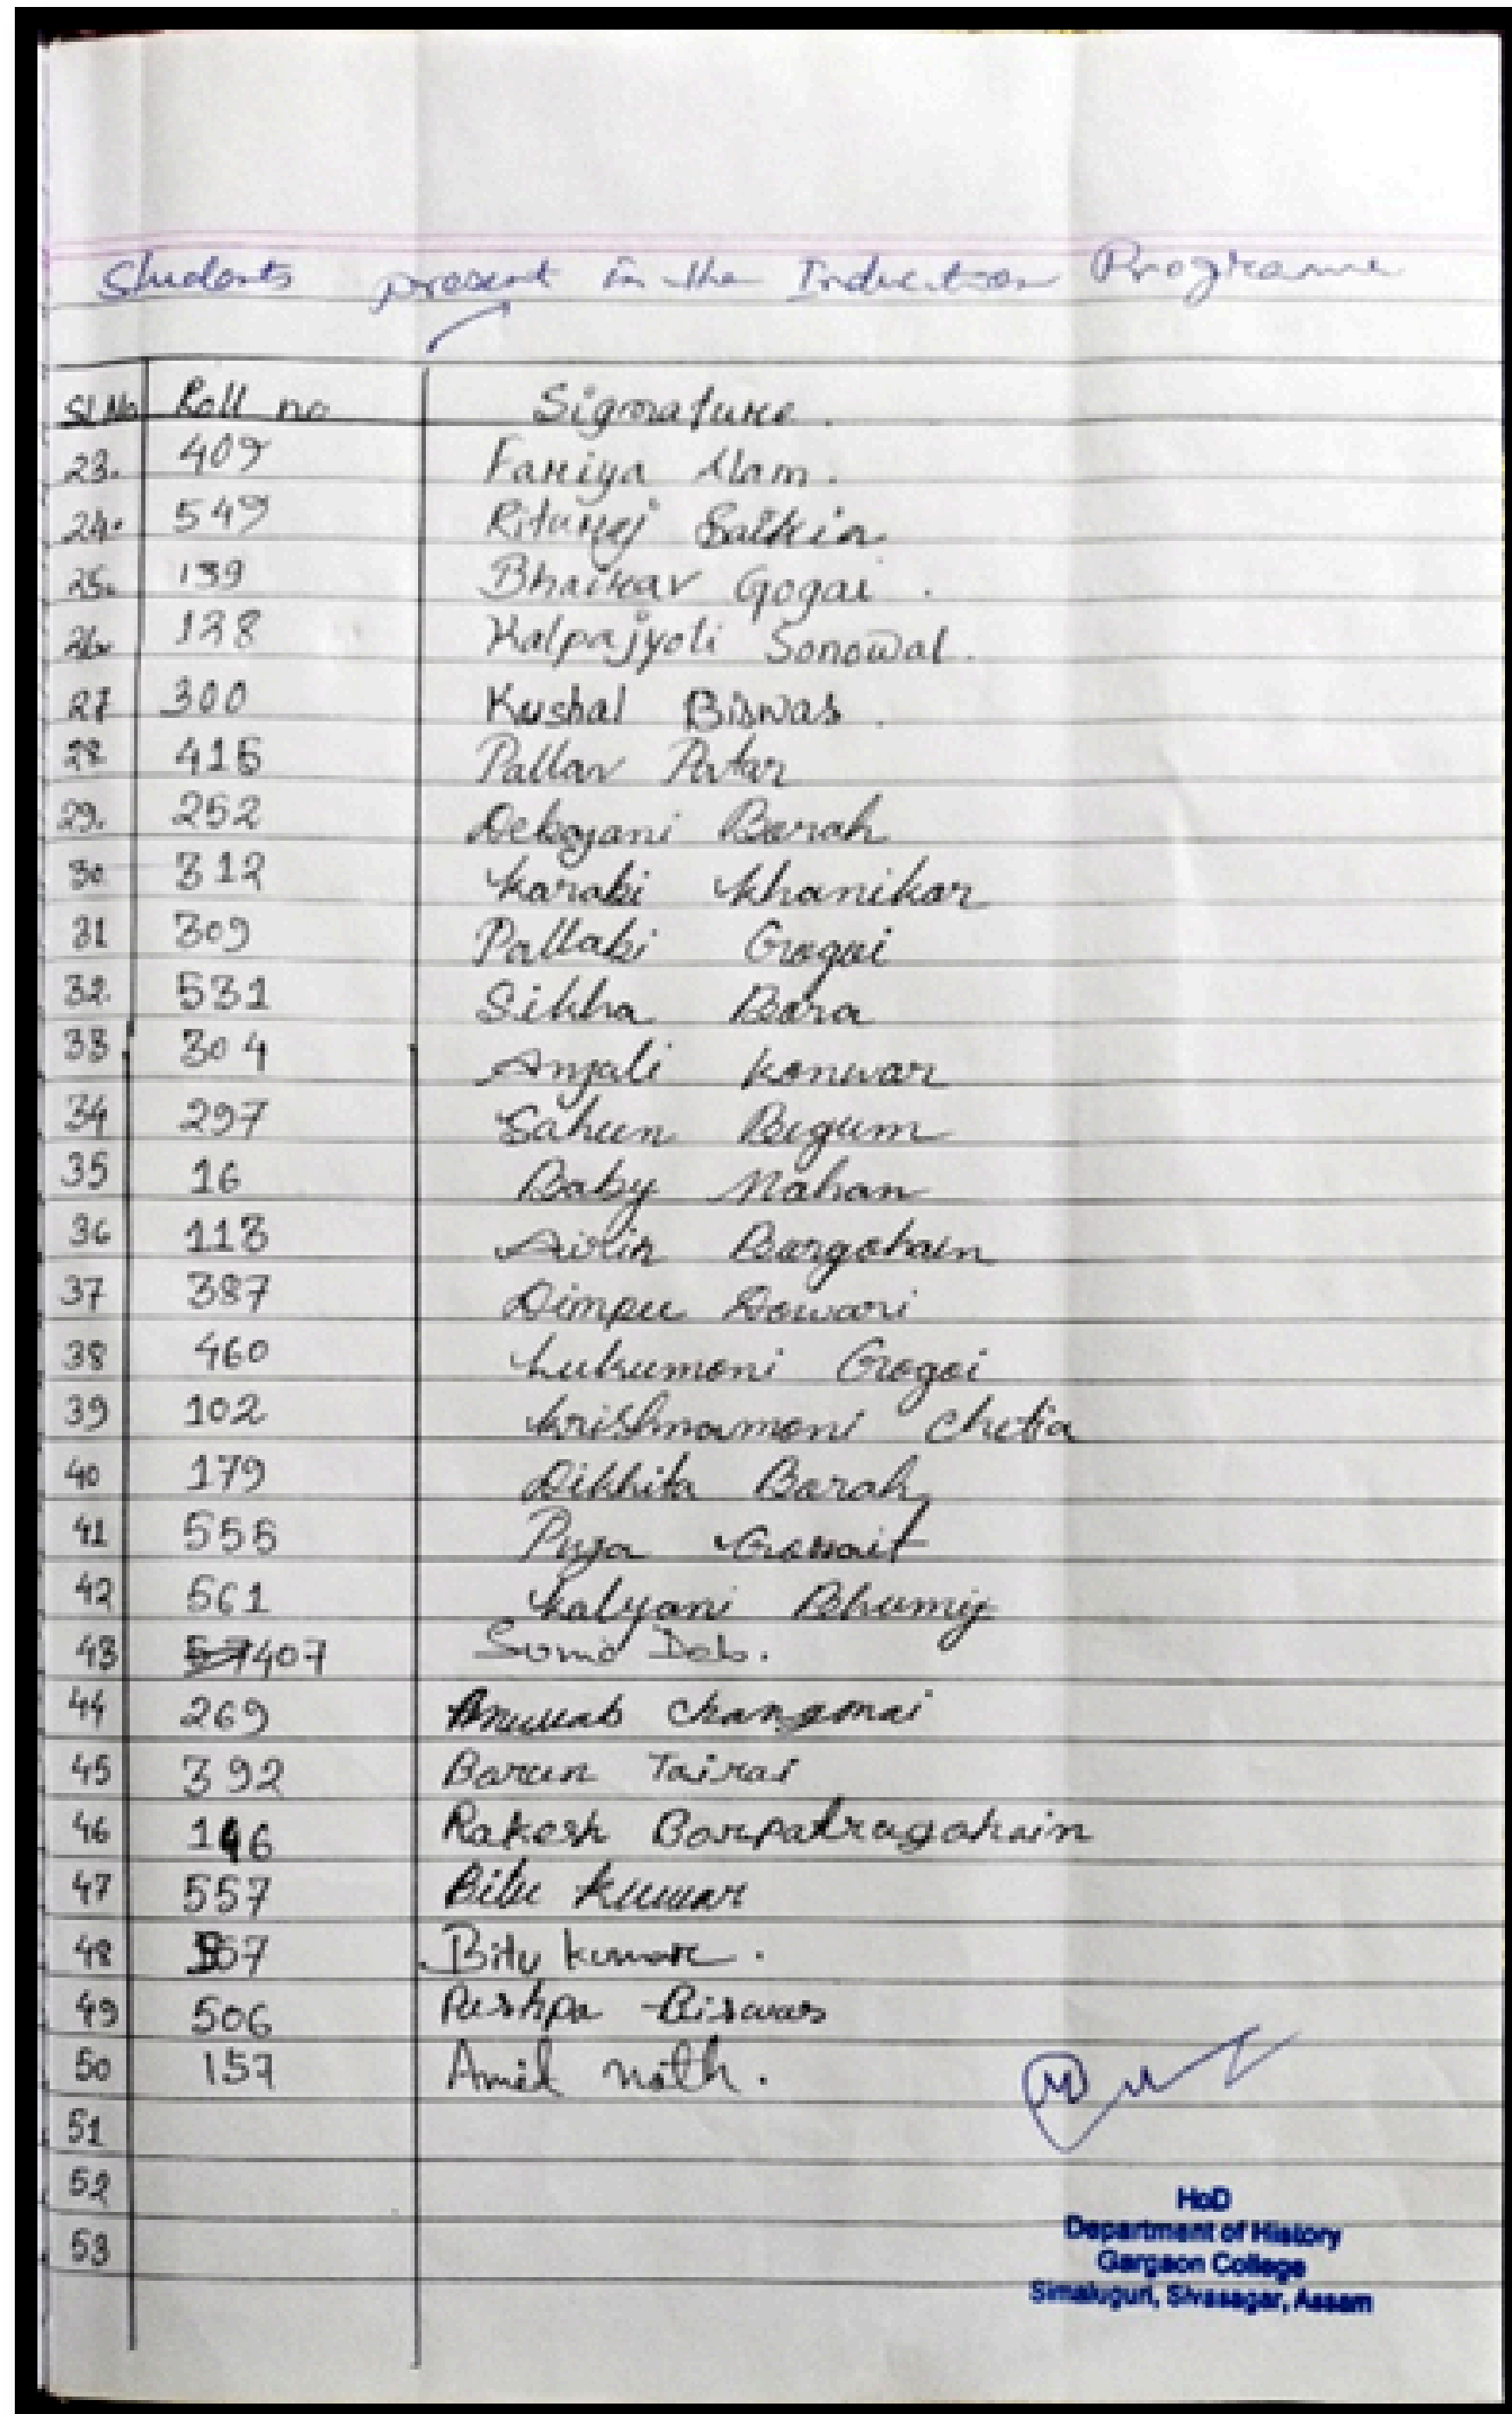 Students present in the Induction Programme
Sl.No Roll no Signature.
23. 409 Fariya Alam.
24. 549 Rituraj Saikia
25. 139 Bhairav Gogai.
26. 128 Kalpajyoti Sonowal.
27 300 Kushal Biswas.
28 415 Pallav Patar
29. 252 Debojani Borah
30 312 Karabi Khanikar
31 309 Pallabi Gogoi
32. 531 Sikha Bora
33 304 Anjali Konwar
34 297 Begum
35 16 Baby
36 113 Borgohain
37 387 Dimpu Dowari
38 460 Lukumoni Gogoi
39 102 Krishnamoni Chetia
40 179 Dikhita Borah
41 555 Puja
42 561 Kalyani Bhumij
43 407 Deb.
44 269 Changmai
45 392 Barun Tairai
46 146 Rakesh Borpatragohain
47 557 Bitu Kumar
48 557 Bitu kumar.
49 506 Pushpa Biswas
50 157 nath.
51
52
53
HoD
Department of History
Gargaon College
Simaluguri, Sivasagar, Assam